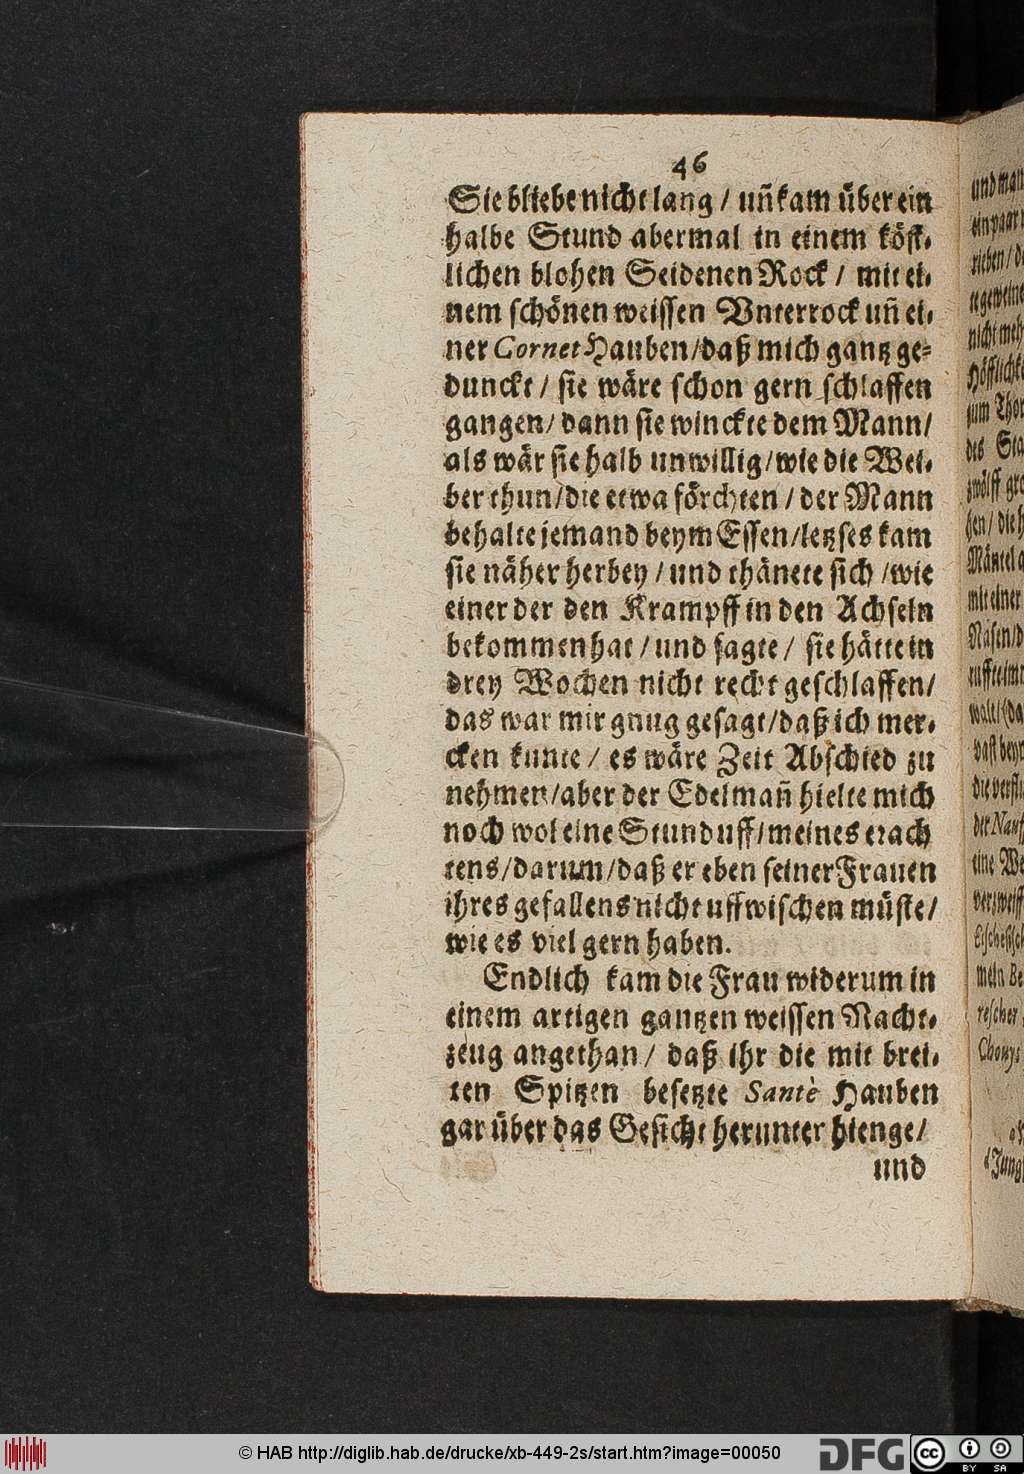 46
Sie bliebe nicht lang / uñ kam über ein
halbe Stund abermal in einem köst-
lichen blohen Seidenen Rock / mit ei-
nem schönen weissen Vnterrock uñ ei-
ner Cornet Hauben/daß mich gantz ge-
dunckt / sie wäre schon gern schlaffen
gangen/ dann sie winckte dem Mann/
als wär sie halb unwillig/wie die Wei-
ber thun/die etwa förchten / der Mann
behalte jemand beym Essen/letzses kam
sie näher herbey / und thänete sich /wie
einer der den Krampff in den Achseln
bekommen hat / und sagte / sie hätte in
drey Wochen nicht recht geschlaffen/
das war mir gnug gesagt/daß ich mer-
cken kunte / es wäre Zeit Abschied zu
nehmen/aber der Edelmañ hielte mich
noch wol eine Stund uff/meines erach
tens/darum/daß er eben seiner Frauen
ihres gefallens nicht uffwischen müste/
wie es viel gern haben.
Endlich kam die Frau widerum in
einem artigen gantzen weissen Nacht-
zeug angethan / daß ihr die mit brei-
ten Spitzen besetzte Santè Hauben
gar über das Gesicht herunter hienge/
und
© HAB http://diglib.hab.de/drucke/xb-449-2s/start.htm?image=00050
DFG
cc BY SA